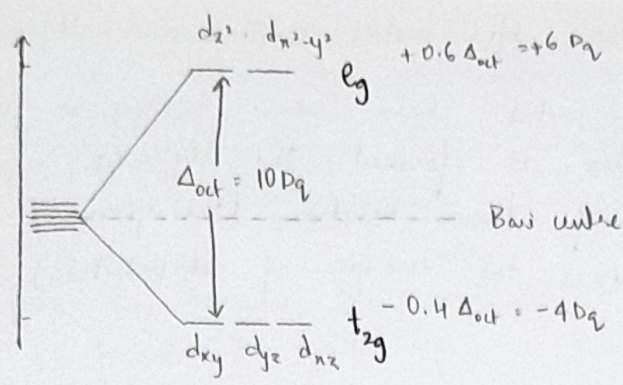 d_z² d_x²-y²
+0.6 Δ_oct = +6 Dq
e_g
Δ_oct = 10 Dq
Bari centre
t_2g - 0.4 Δ_oct = -4 Dq
d_xy d_yz d_xz